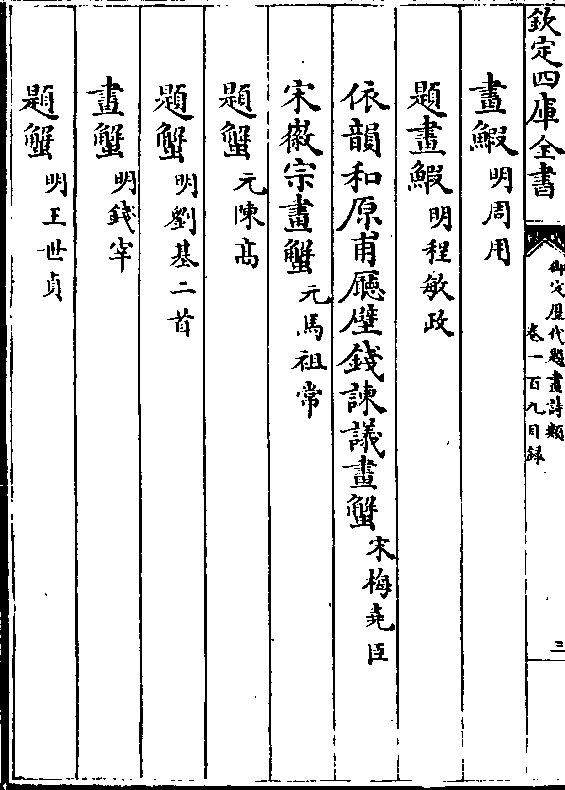 欽定四庫全書
御定歷代題畫詩類
卷一百九目錄
三
畫鰕 明周用
題畫鰕 明程敏政
依韻和原甫廳壁錢諫議畫蟹 宋梅堯臣
宋徽宗畫蟹 元馬祖常
題蟹 元陳高
題蟹 明劉基二首
畫蟹 明錢宰
題蟹 明王世貞